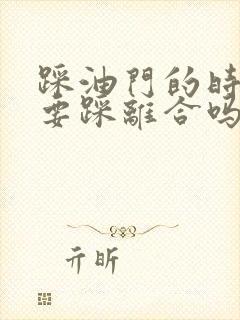 踩油門的時
要踩離合嗎
亓昕